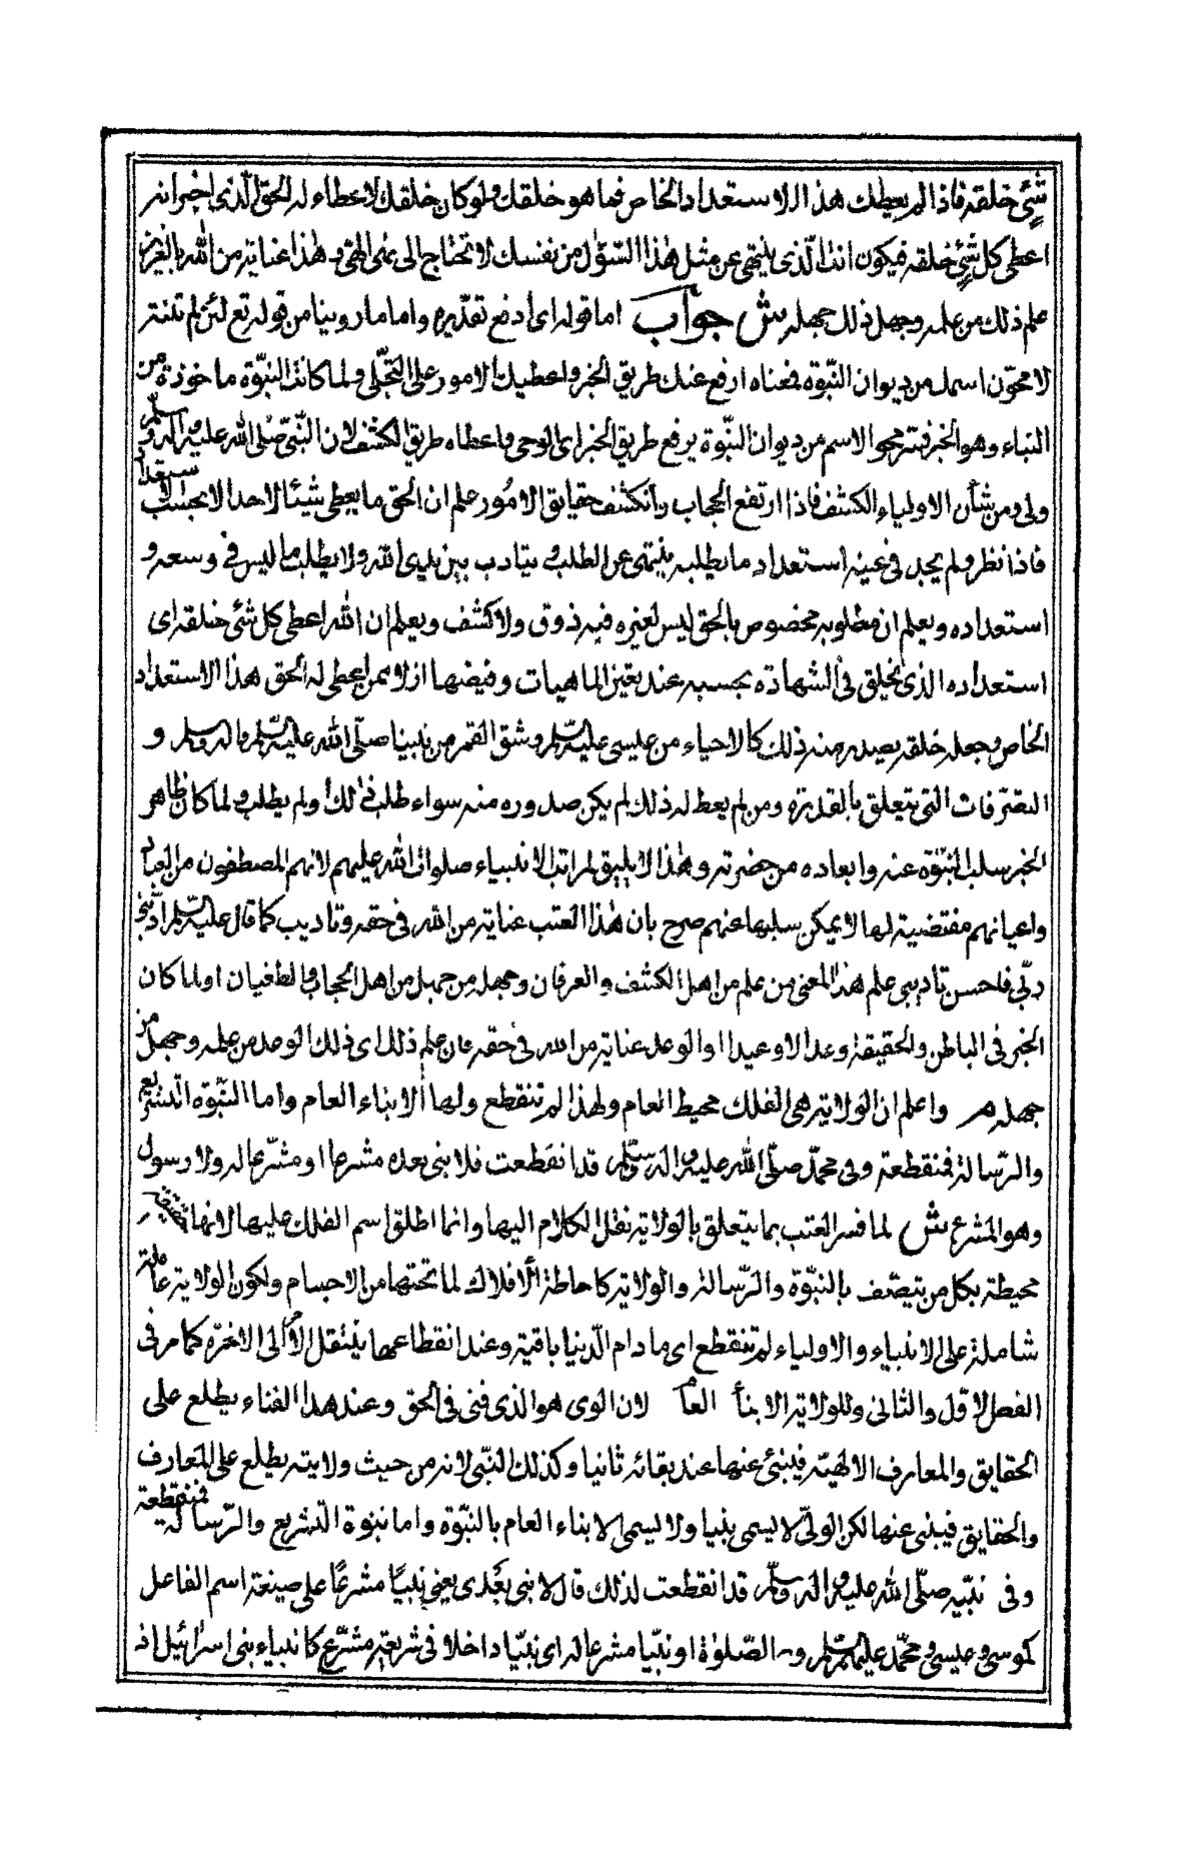 شئ خلقه فاذا لم يعطك هذا الاستعداد الخاص فما هو خلقك ولو كان خلقك لاعطاه له الحق الذى اخبر انه
اعطى كل شئ خلقه فيكون انت الذى ينتهى عن مثل هذا السؤال من نفسك لا تحتاج الى نهى الهى وهذا عناية من الله بالعزير
علم ذلك من علمه وجهل ذلك من جهله ش جواب اما قوله اى ادفع تقديره واما ما روينا من قوله تع لئن لم تنته
لامحون اسمك من ديوان النبوة فمعناه ارفع عنك طريق الخبر واعطيك الامور على التجلى ولما كانت النبوة ماخوذة من
النباء وهو الخبر فسر محو الاسم من ديوان النبوة برفع طريق الخبر اى الوحى واعطاه طريق الكشف لان النبى صلى الله عليه واله وسلم
ولى ومن شأن الاولياء الكشف فاذا ارتفع الحجاب وانكشف حقايق الامور علم ان الحق ما يعطى شيئا لاحد الا بحسب الاستعداد
فاذا نظر ولم يجد فى عينه استعداد ما يطلبه ينتهى عن الطلب و يتادب بين يدى الله ولا يطلب ما ليس فى وسعه و
استعداده ويعلم ان مطلوبه مخصوص بالحق ليس لغيره فيه ذوق ولا كشف ويعلم ان الله اعطى كل شئ خلقه اى
استعداده الذى يخلق فى الشهادة بحسبه عند تعين الماهيات وفيضها ازلا فمن اعطى له الحق هذا الاستعداد
الخاص وجعله خلقه يصدر منه ذلك كالاحياء من عيسى عليه السلم وشق القمر من نبينا صلى الله عليه السلم واله وسلم و
التصرفات التى يتعلق بالقدرة ومن لم يعط له ذلك لم يكن صدوره منه سواء طلب ذلك او لم يطلب ولما كان ظاهر
الخبر سلب النبوة عنه وابعاده من حضرته وهذا لا يليق لمراتب الانبياء صلوات الله عليهم لانهم المصطفون من العباد
واعيانهم مقتضية لها لا يمكن سلبها عنهم صرح بان هذا العتب عناية من الله فى حقه وتاديب كما قال عليه السلم ادبنى
ربى فاحسن تاديبى علم هذا المعنى من علم من اهل الكشف والعرفان وجهله من جهل من اهل الحجاب والطغيان او لما كان
الخبر فى الباطن والحقيقة وعدا لا وعيدا او الوعد عناية من الله فى حقه قال علم ذلك اى ذلك الوعد من علمه وجهل من
جهله م واعلم ان الولاية هى الفلك محيط العام ولهذا لم تنقطع ولها الانباء العام واما النبوة التشريع
والرسالة فمنقطعة وفى محمد صلى الله عليه واله وسلم قد انقطعت فلا نبى بعده مشرعا او مشرعا له ولا رسول
وهو المشرع ش لما فسر العتب بما يتعلق بالولاية نقل الكلام اليها وانما اطلق اسم الفلك عليها لانها حقيقة
محيطة بكل من يتصف بالنبوة والرسالة والولاية كاحاطة الافلاك لما تحتها من الاجسام ولكون الولاية عامة
شاملة على الانبياء والاولياء لم تنقطع اى ما دام الدنيا باقية وعند انقطاعها ينتقل الامر الى الاخرة كما مر فى
الفصل الاول والثانى وللولاية الانبأ العام لان الولى هو الذى فنى فى الحق وعند هذا الفناء يطلع على
الحقايق والمعارف الالهية فينبئ عنها عند بقائه ثانيا وكذلك النبى لانه من حيث ولايته يطلع على المعارف
والحقايق فينبى عنها لكن الولى لا يسمى نبيا ولا يسمى الانباء العام بالنبوة واما نبوة التشريع والرسالة فمنقطعة
وفى نبيه صلى الله عليه واله وسلم قد انقطعت لذلك قال لا نبى بعدى يعنى نبيًا مشرعًا على صيغة اسم الفاعل
كموسى وعيسى ومحمد عليهم السلم و الصلوة او نبيا مشرعا له اى نبيا داخلا فى شريعة مشرع كانبياء بنى اسرائيل اذ